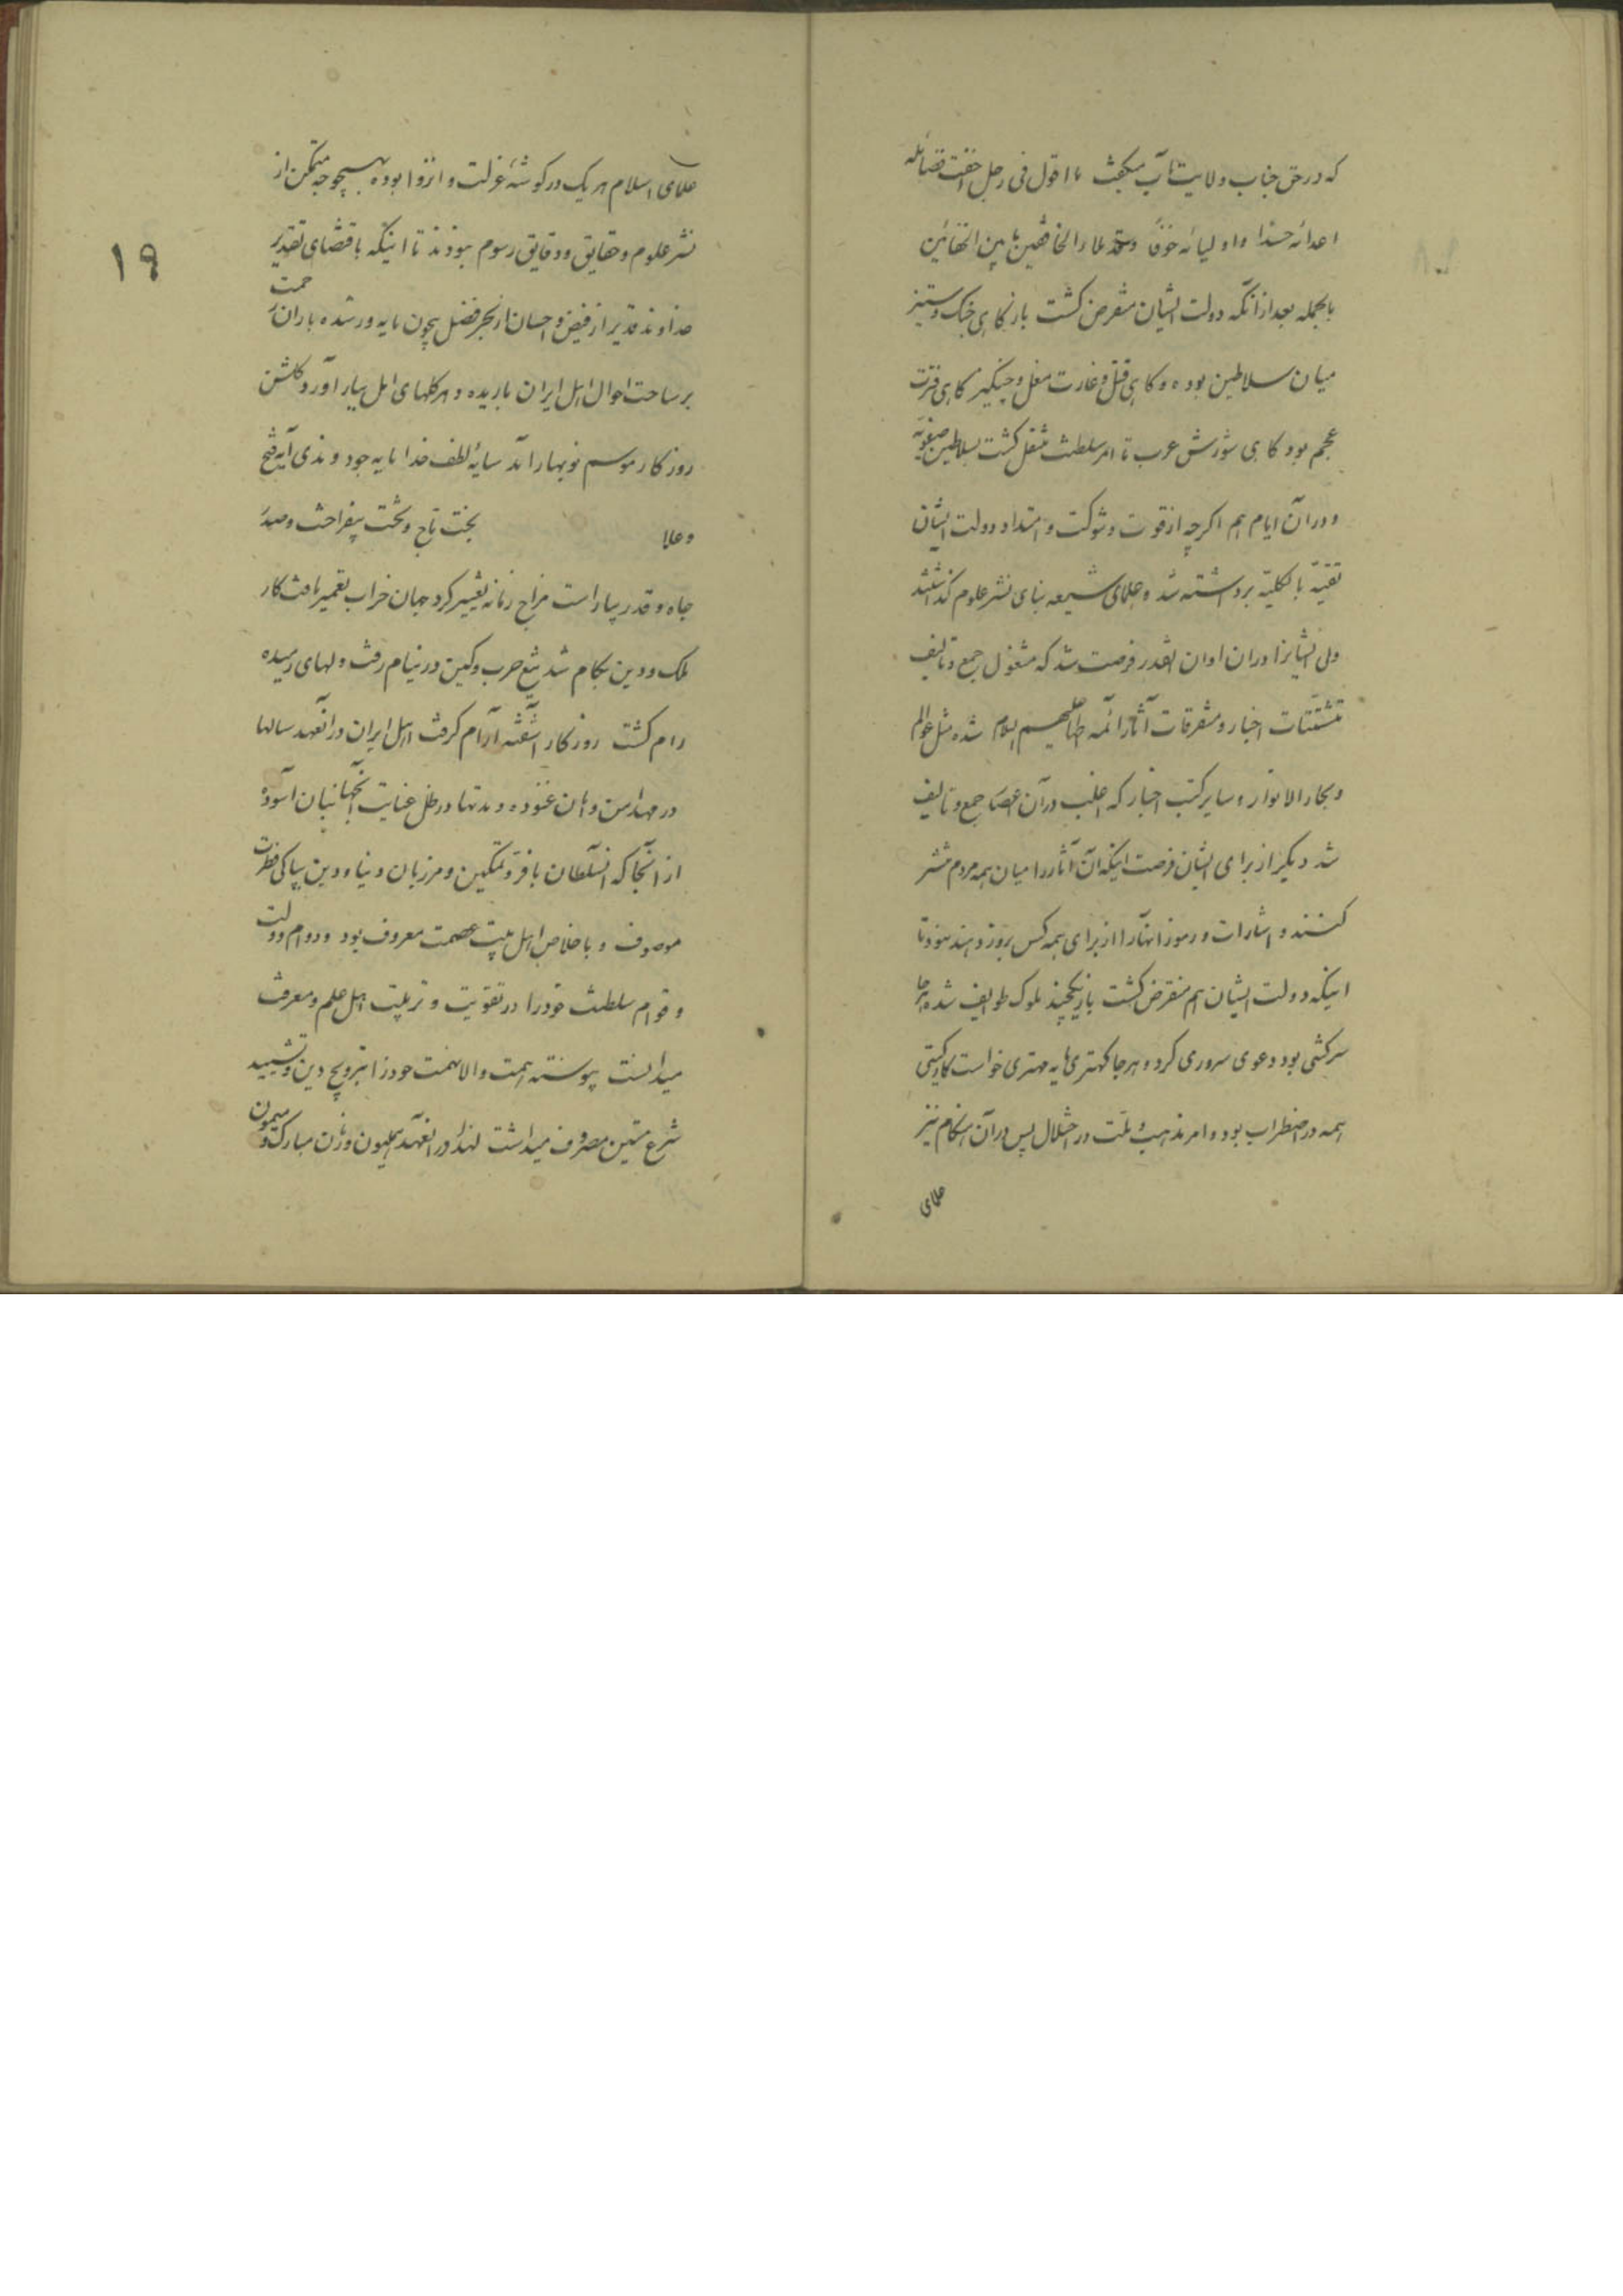 که در حق جناب ولایتمآب میگفت ما اقول فی رجل اخفت فضائله
اعدائه حسدا و اولیائه خوفا و قد ملأ الخافقین ما بین الخفائین
بالجمله بعد از آنکه دولت ایشان منقرض کشت باز کاهی جنک و ستیز
میان سلاطین بوده و کاهی قتل و غارت مغل و چنکیز کاهی فترت
عجم بود کاهی شورش عرب تا امر سلطنت منتقل کشت بسلاطین صفویه
و در آن ایام هم اکرچه از قوت و شوکت و امتداد دولت ایشان
تقیّه بالکلیّه برداشته شد و علمای شیعه بنای نشر علوم کذاشتند
ولی ایشانرا در ان اوان انقدر فرصت شد که مشغول جمع و تالیف
متشتتات اخبار و متفرقات آثار ائمه اطهار علیهم السلام شده مثل عوالم
و بحار الانوار و سایر کتب اخبار که اغلب در آن اعصار جمع و تالیف
شد دیکر از برای ایشان فرصت اینکه آن آثار را میان همه مردم منتشر
کنند و اشارات و رموز انها را از برای همه کس بروز دهند نبود تا
اینکه دولت ایشان هم منقرض کشت باز یکچند ملوک طوایف شده هر جا
سرکشی بود دعوی سروری کرد و هر جا کهتری مایه مهتری خواست کار کیتی
همه در اضطراب بود و امر مذهب و ملت در اختلال پس در آن هنکام نیز
علمای
علمای اسلام هر یک در کوشهٔ عزلت و انزوا بوده بهیچوجه متمکن از
نشر علوم و حقایق و دقایق رسوم نبودند تا اینکه باقتضای تقدیر
خداوند قدیر از فیض و احسان از بحر فضل بیچون مایه ور شده باران رحمت
بر ساحت احوال اهل ایران باریده و هر کلهای امل ببار آورد کلشن
روزکار موسم نوبهار آمد سایهٔ لطف خدا مایه جود و ندی آیه فتح
و علا بخت تاج و تخت بیفراخت و صدر
جاه و قدر بیاراست مزاج زمانه تغییر کرد جهان خراب تعمیر یافت کار
ملک و دین بکام شد تیغ حرب و کین در نیام رفت دلهای رمیده
رام کشت روزکار آشفته آرام کرفت اهل ایران در آنعهد سالها
در مهد امن و امان غنوده و مدتها در ظل عنایت انجهانبان آسوده
از آنجا که انسلطان با فرّ و تمکین و مرزبان دنیا و دین بپاکی فطرت
موصوف و باخلاص اهل بیت عصمت معروف بود و دوام دولت
و قوام سلطنت خود را در تقویت و تربیت اهل علم و معرفت
میدانست پیوسته همت والا نهمت خود را بترویج دین و تشیید
شرع متین مصروف میداشت لهذا در انعهد همایون و زمان مبارک و میمون
۱۹